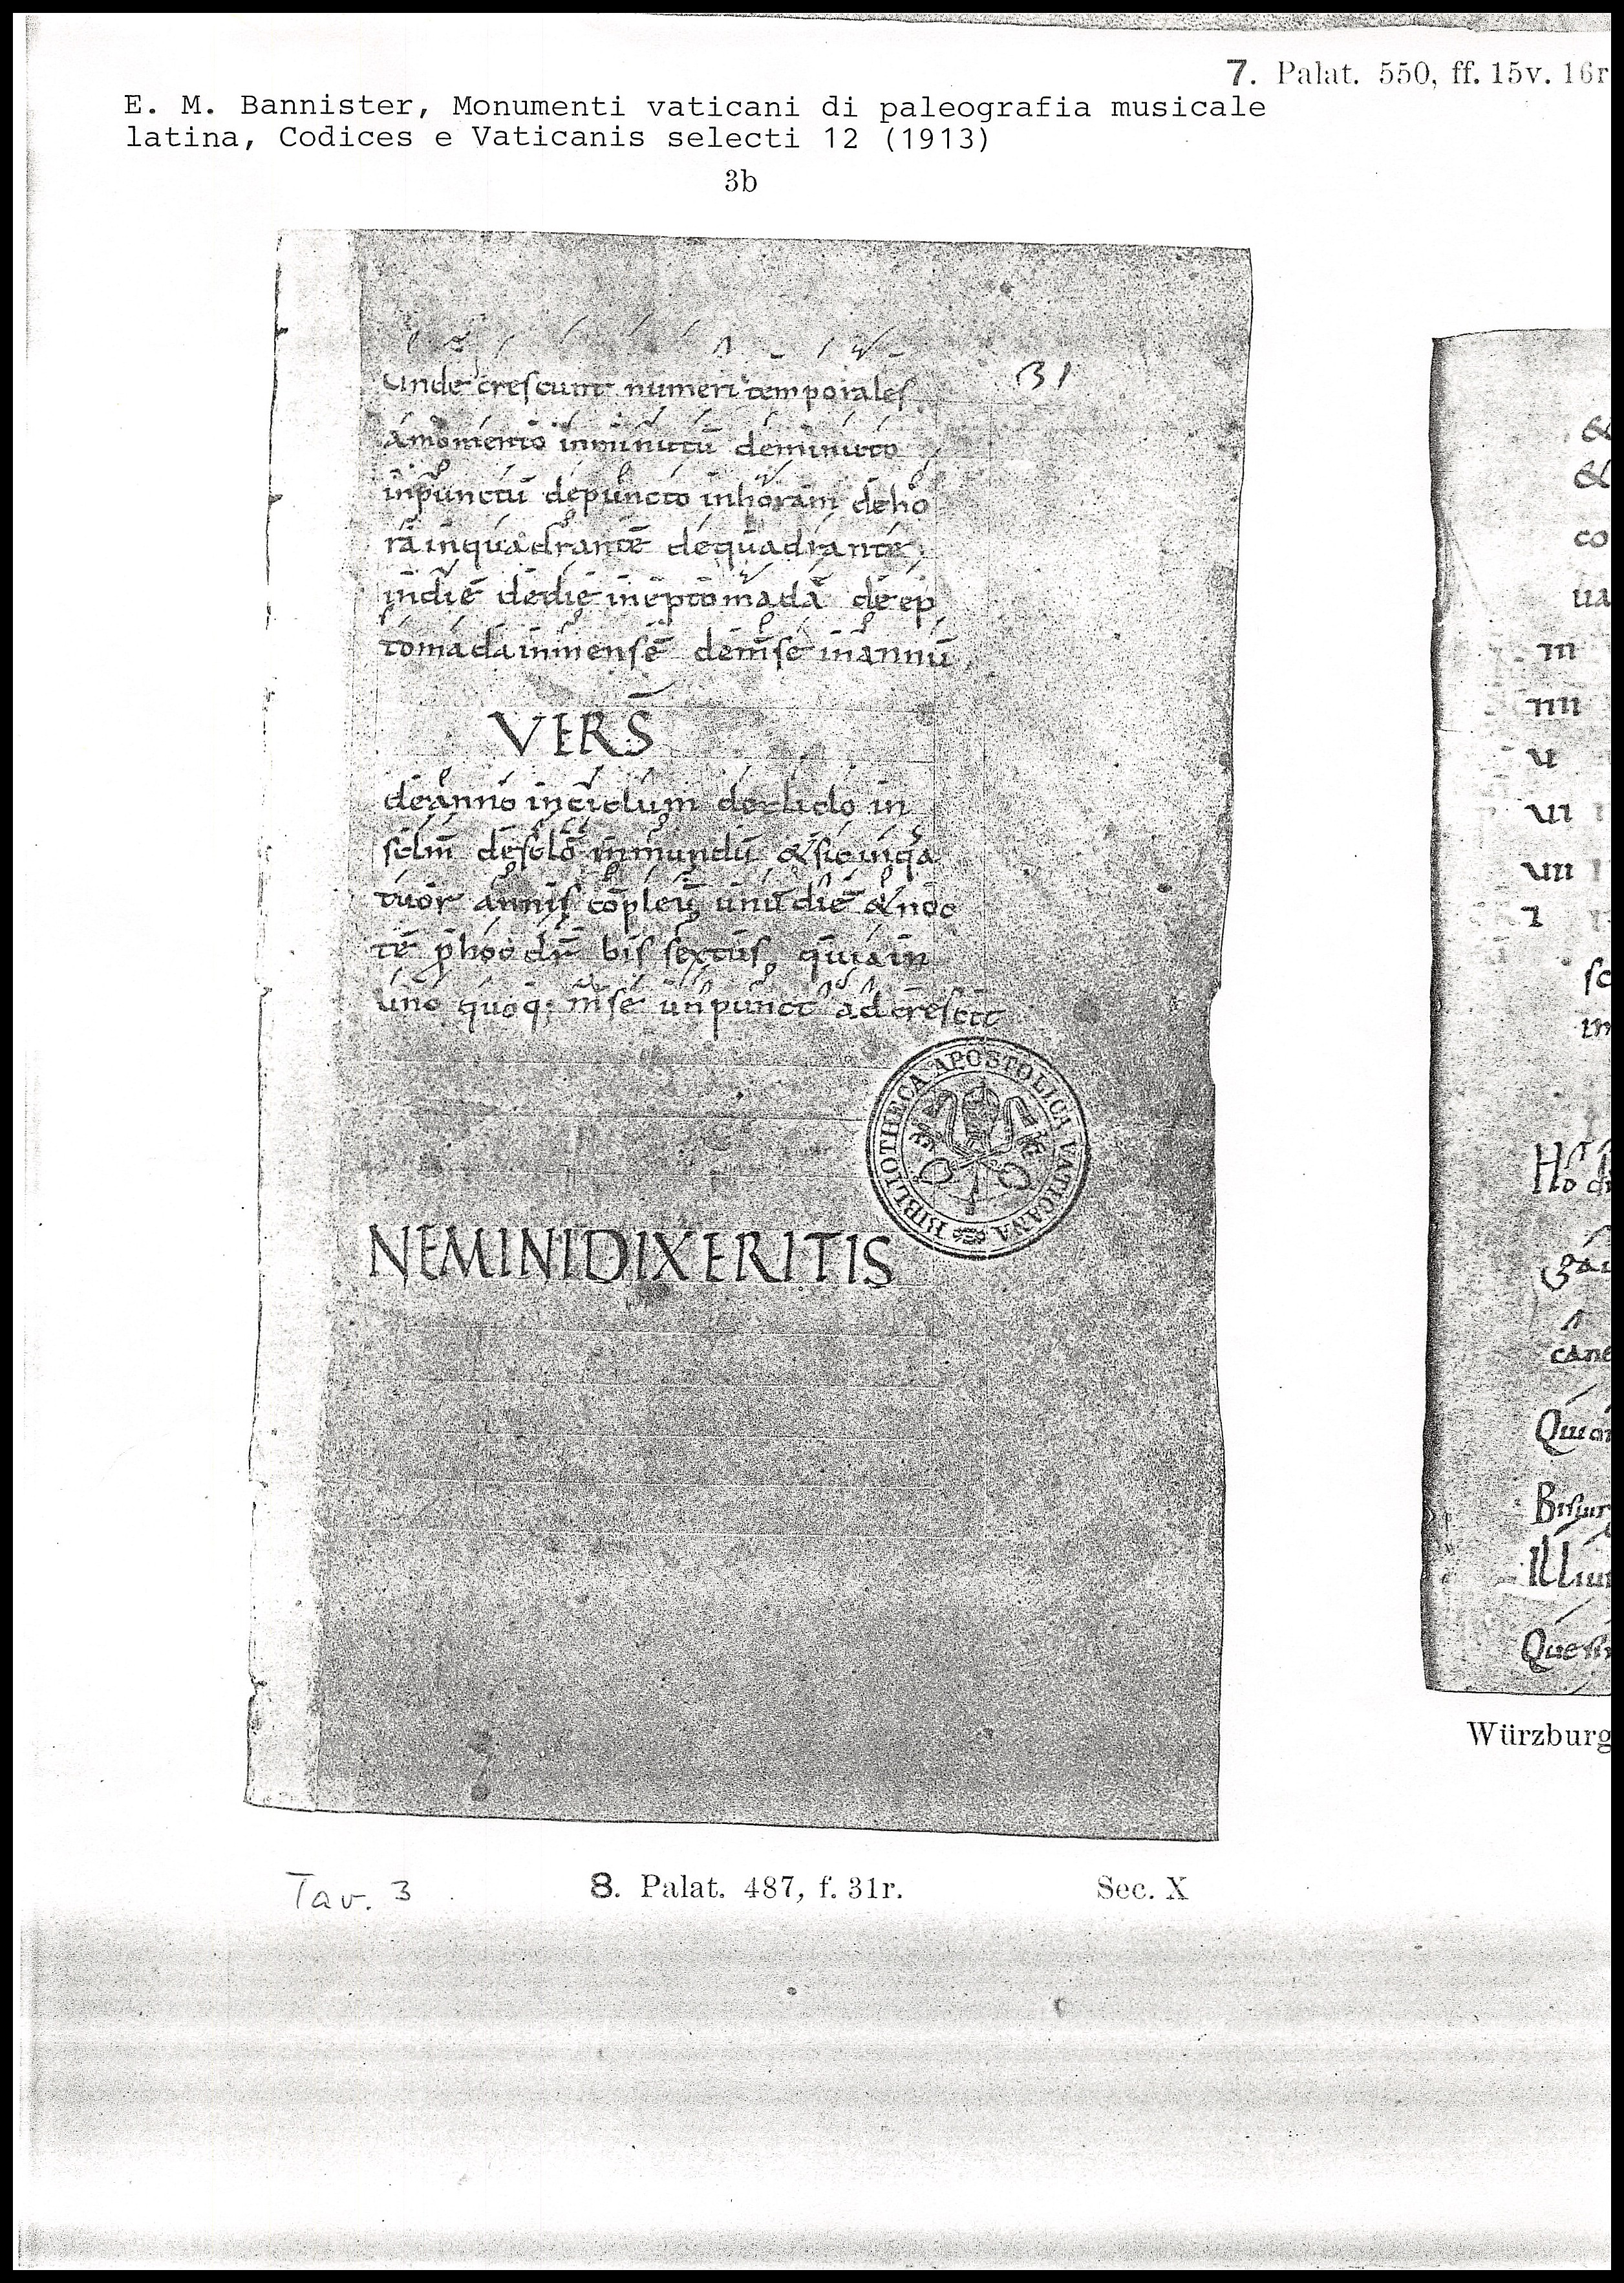 7. Palat. 550, ff. 15v. 16r
E. M. Bannister, Monumenti vaticani di paleografia musicale
latina, Codices e Vaticanis selecti 12 (1913)
3b
Unde crescunt numeri temporales
31
amomento inminutū deminuto
inpunctū depuncto inhoram deho
rā inquadrantē dequadrante
indiē dedie ineptomadā deep
tomada inmensē demse inannū
VERS̄
deanno incıclum decıclo in
sclm̄ desclō inmundū & sic inqa
tuor annis cōplent unū diē & noc
tē phoc dr̄ bis sextus, quia in
uno quoq; m̄se un punct adcrescit
BIBLIOTHECA APOSTOLICA VATICANA
NEMINIDIXERITIS
&
&
co
ua
m
mı
u
uı
uıı
sc
in
Ho
gau
cane
Qui
Bis
Illiu
Que
Würzburg
Tav. 3
8. Palat. 487, f. 31r.
Sec. X